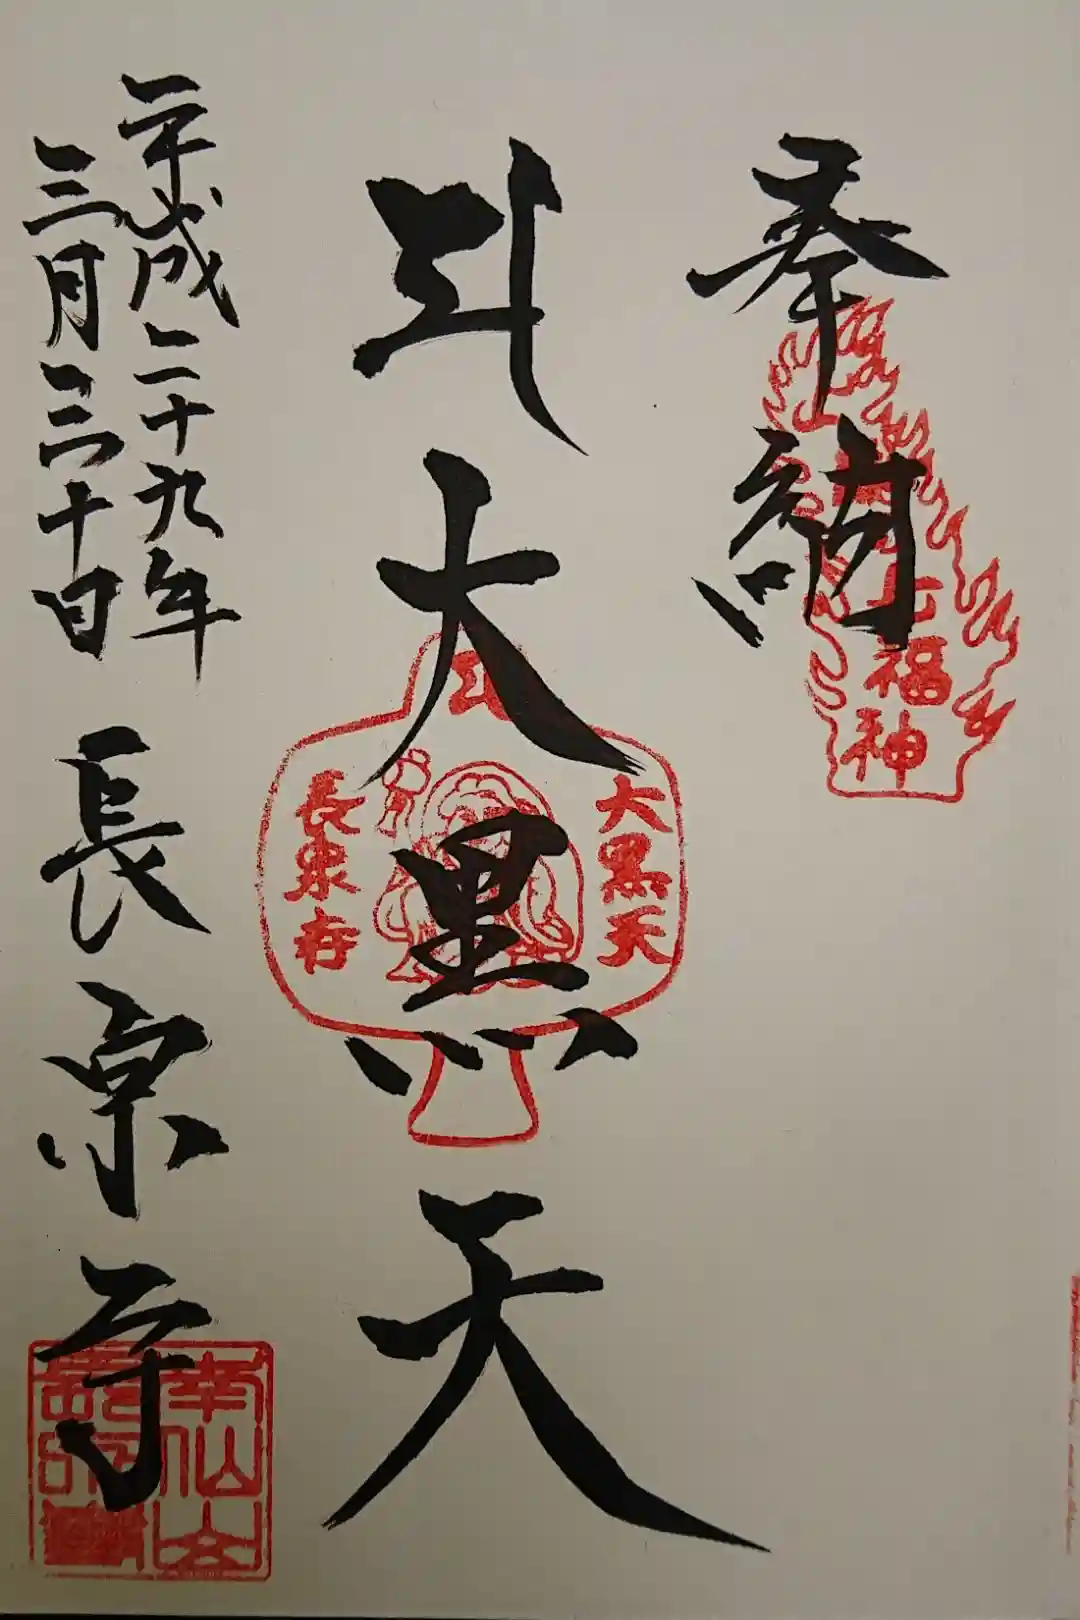 奉納
七福神
大黒天
大黒天
長泉寺
平成二十九年
三月三十日
長泉寺